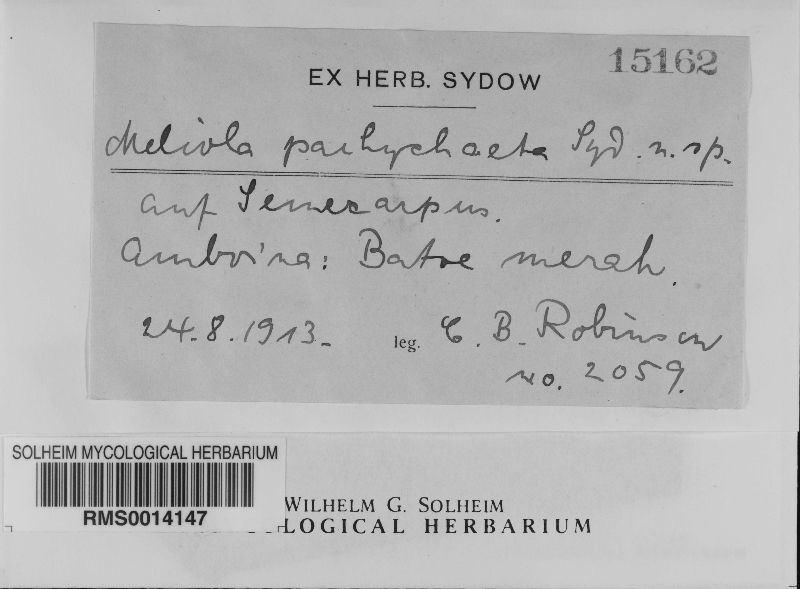 15162
EX HERB. SYDOW
Meliola pachychaeta Syd. n. sp.
auf Semecarpus.
Amboina: Batoe merah.
24.8.1913. leg. C. B. Robinson
no. 2059.
SOLHEIM MYCOLOGICAL HERBARIUM
RMS0014147
WILHELM G. SOLHEIM
LOGICAL HERBARIUM